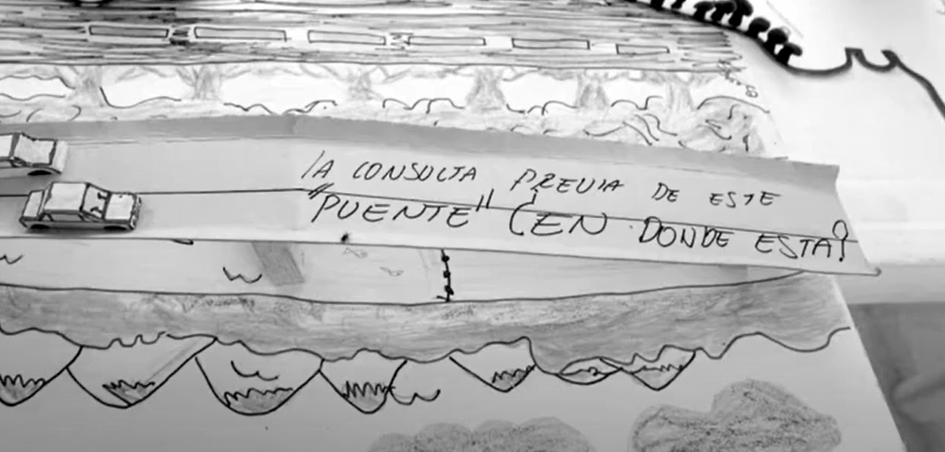 LA CONSULTA PREVIA DE ESTE
"PUENTE" ¿EN DONDE ESTA?